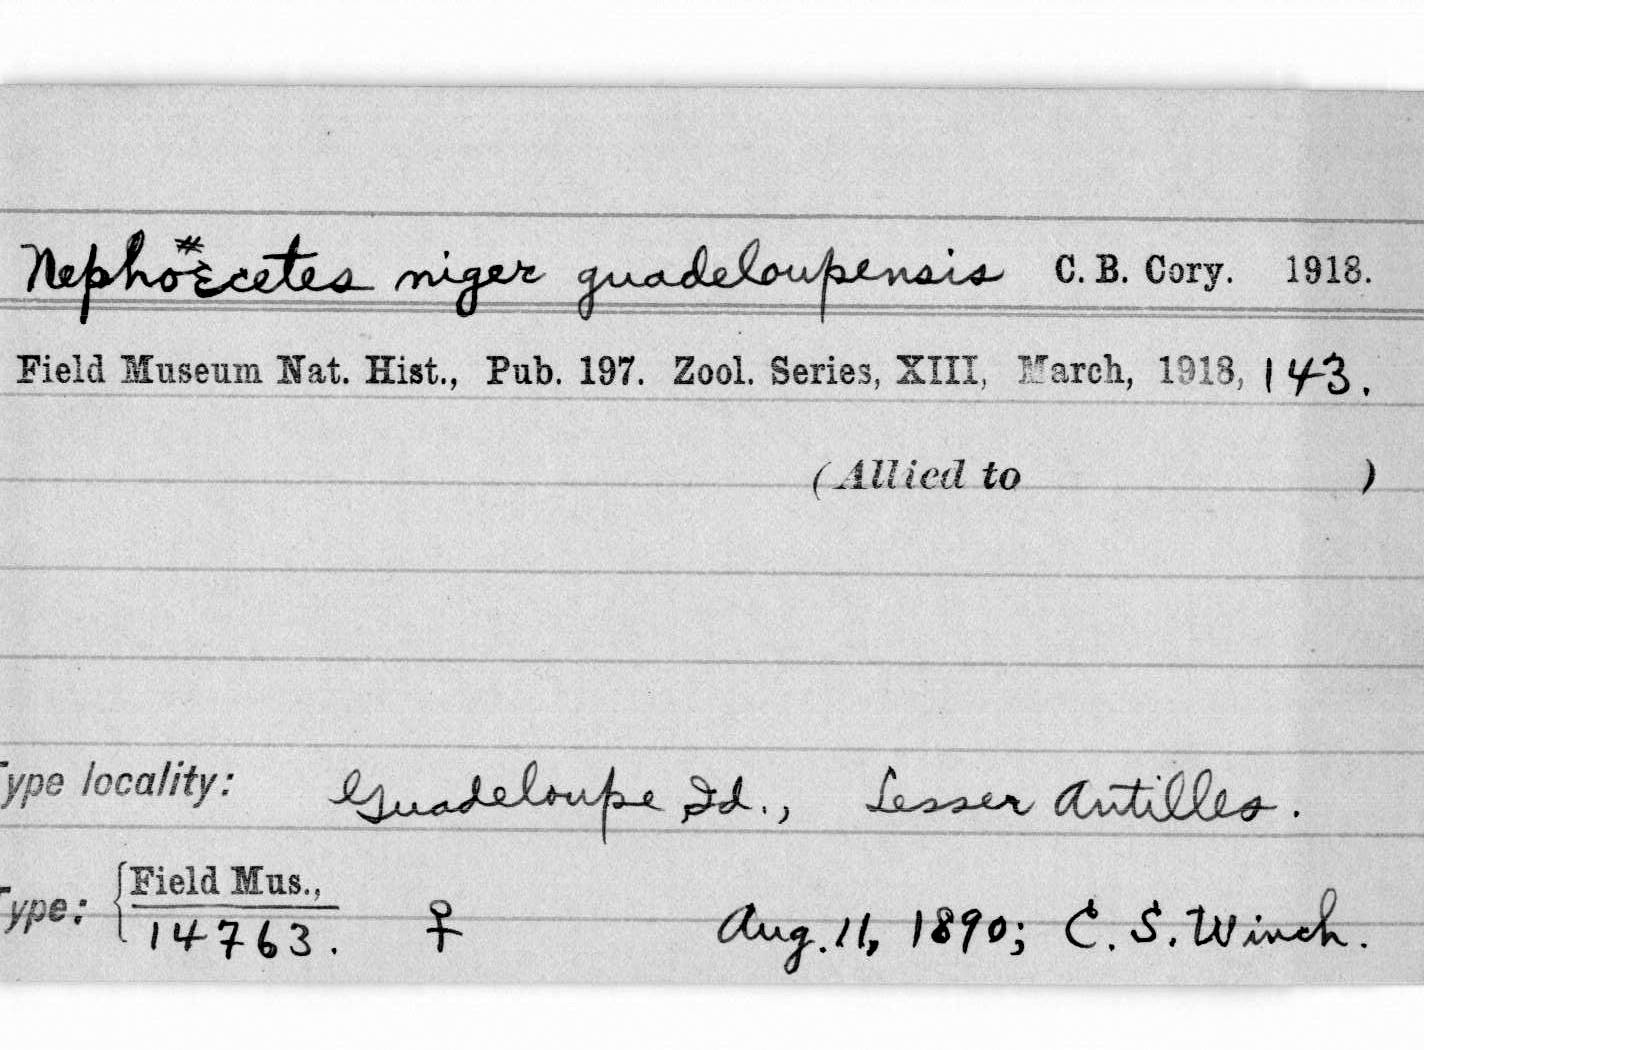 Nephoecetes niger guadeloupensis C. B. Cory. 1918.
Field Museum Nat. Hist., Pub. 197. Zool. Series, XIII, March, 1918, 143.
(Allied to )
Type locality: Guadeloupe Id., Lesser Antilles.
Type: { Field Mus., ♀ Aug. 11, 1890; C. S. Winch.
14763.